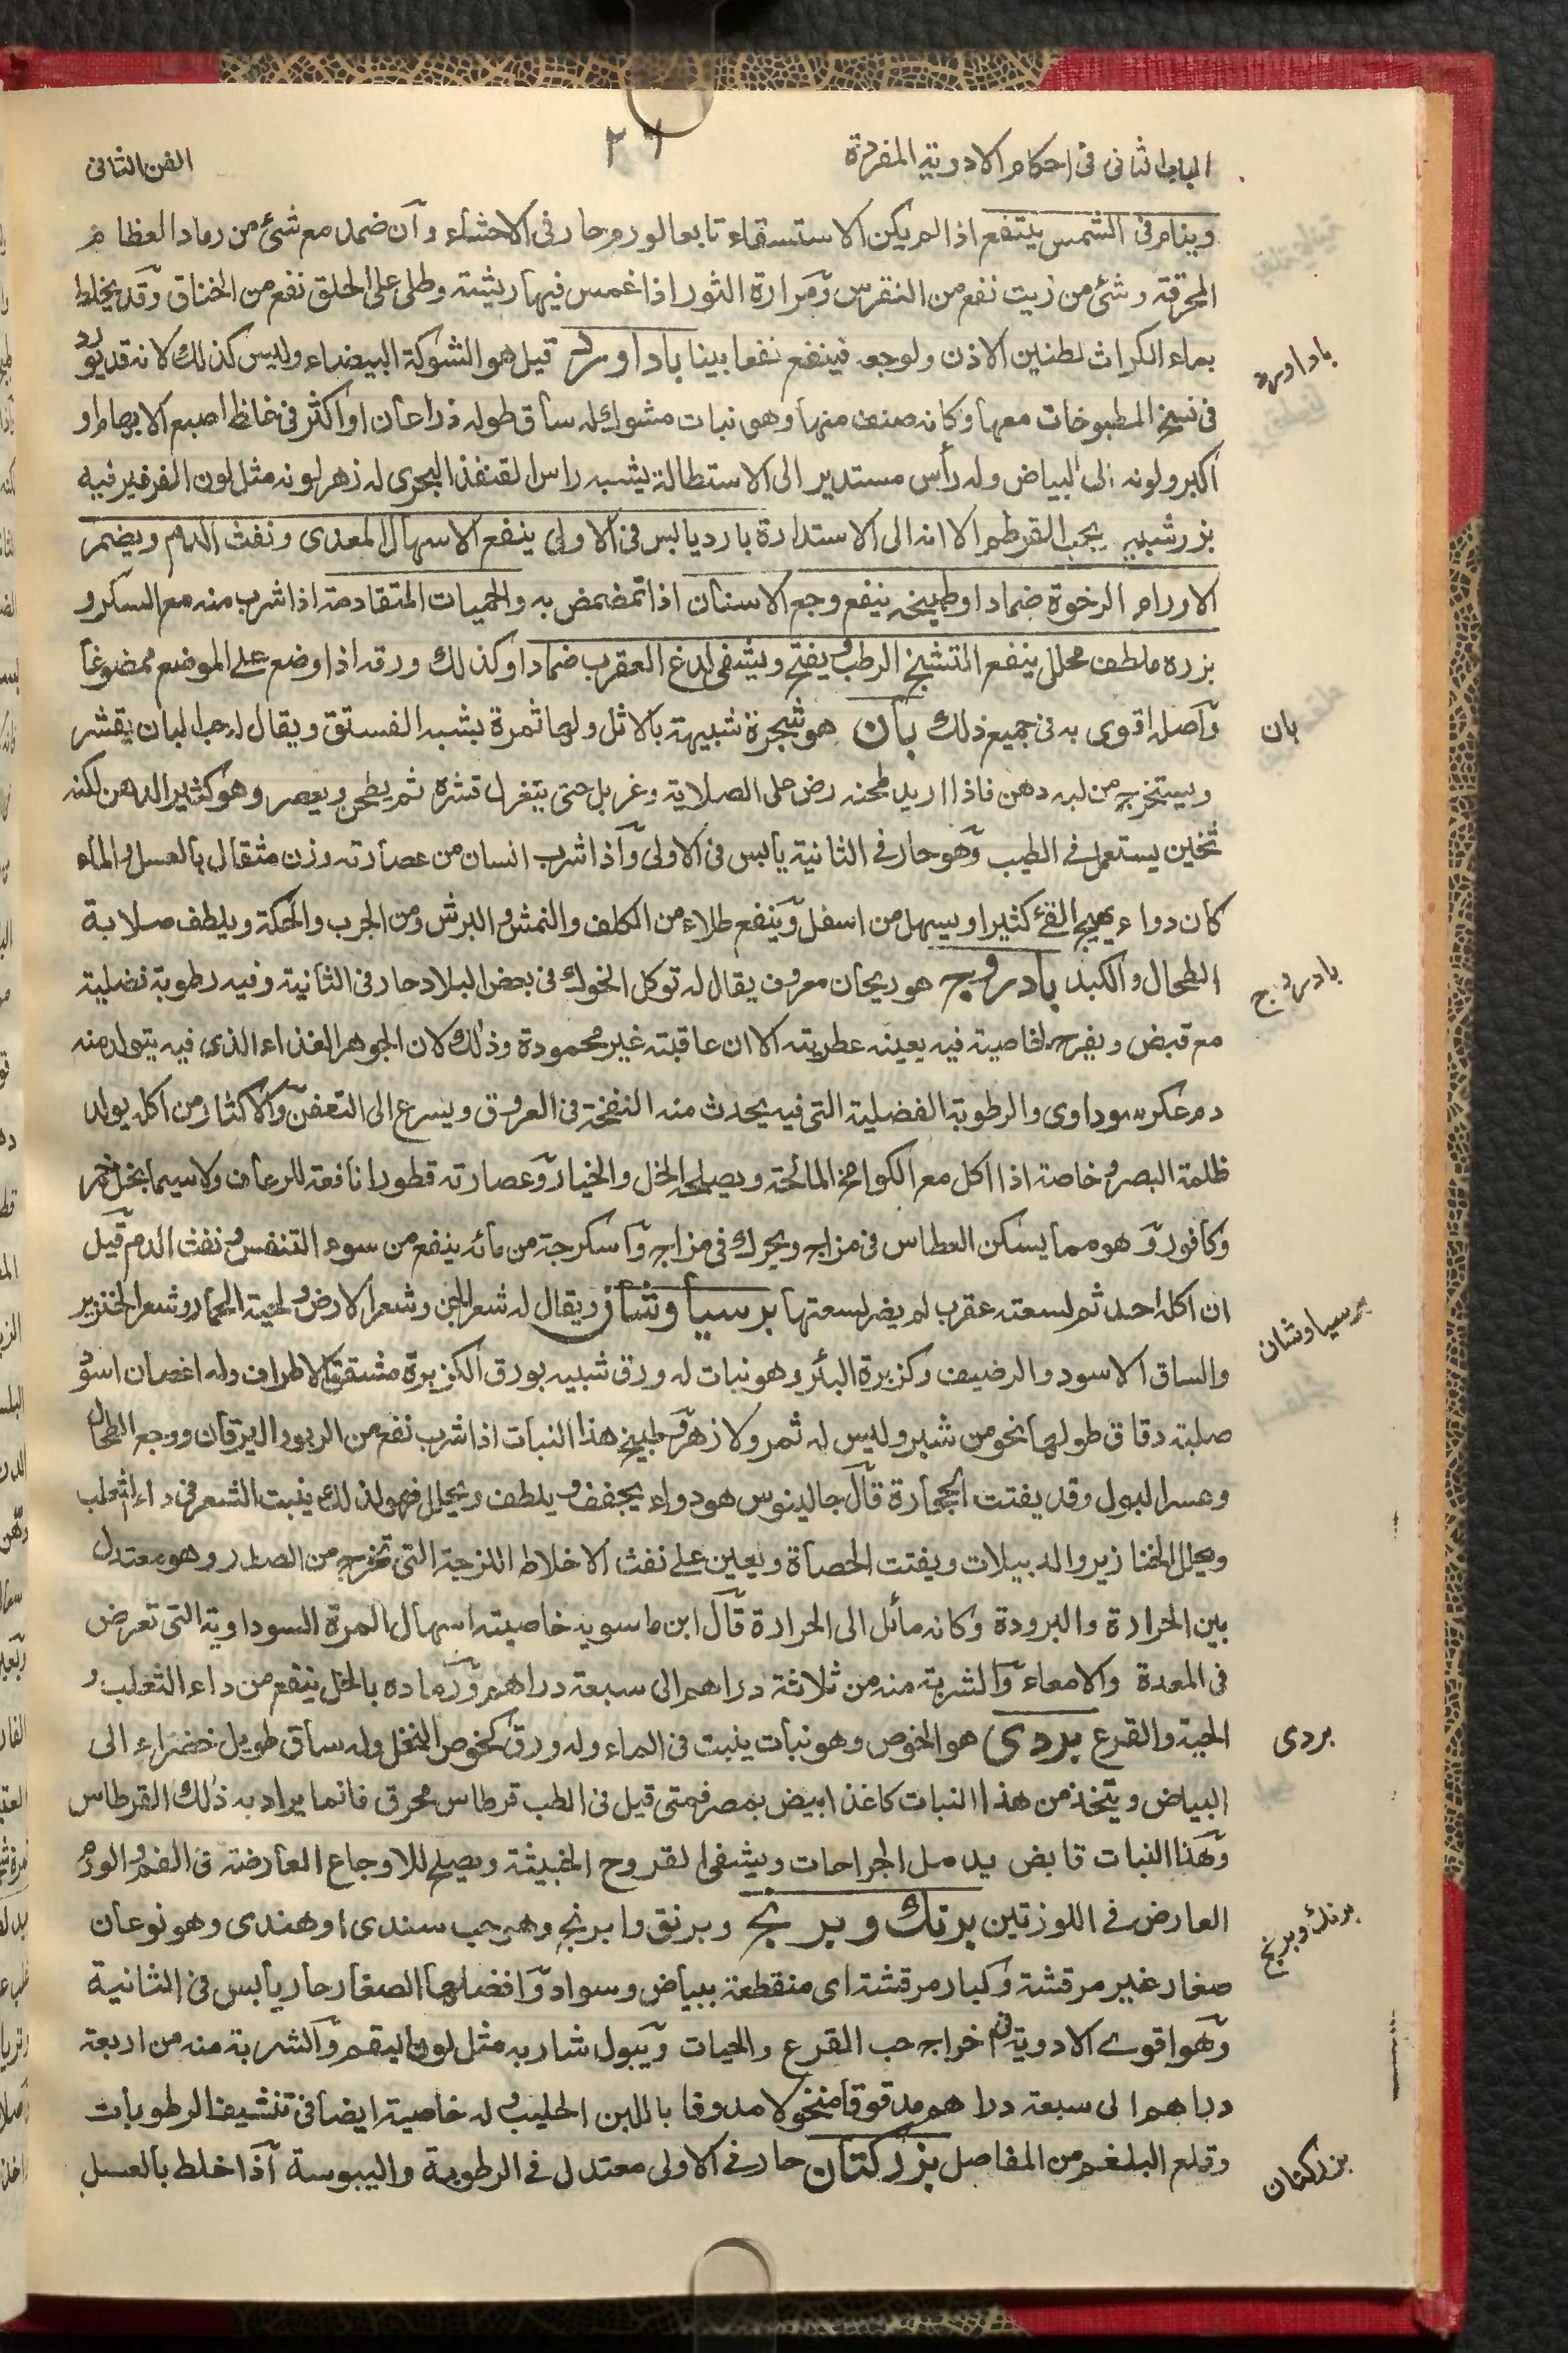 الباب الثانى فى احكام الادوية المفردة
٢٦
الفن الثانى
وينام فى الشمس ينتفع اذا لم يكن الاستسقاء تابعا لورم حار فى الاحشاء وان ضمد مع شئ من رماد العظام
المحرقة وشئ من زيت نفع من النقرس ومرارة الثور اذا غمس فيها ريشة وطلى على الحلق نفع من الخناق وقد يخلط
بماء الكراث لطنين الاذن ولوجعه فينفع نفعا بينا باداورد قيل هو الشوكة البيضاء وليس كذلك لانه قد يورد
باداورد
فى نسخ المطبوخات معها وكانه صنف منها وهو نبات مشوك له ساق طوله ذراعان او اكثر فى غلظ اصبع الابهام او
اكبر ولونه الى البياض وله رأس مستدير الى الاستطالة يشبه راس القنفذ البحرى له زهر لونه مثل لون الفرفير فيه
بزر شبيه بحب القرطم الا انه الى الاستدارة بارد يابس فى الاولى ينفع الاسهال المعدى ونفث الدم ويضمر
الاورام الرخوة ضمادا وطبيخه ينفع وجع الاسنان اذا تمضمض به والحميات المتقادمة اذا شرب منه مع السكر و
بزره ملطف محلل ينفع التشنج الرطب ويفتح ويشفى لدغ العقرب ضمادا وكذلك ورقه اذا وضع على الموضع ممضوغا
واصله اقوى به فى جميع ذلك بان هو شجرة شبيهة بالاثل ولها ثمرة يشبه الفستق ويقال له حب البان يقشر
بان
ويستخرج من لبه دهن فاذا اريد طحنه رض على الصلاية وغربل حتى يتغربل قشره ثم يطحن ويعصر وهو كثير الدهن لكنه
ثخين يستعمل فى الطيب وهو حار فى الثانية يابس فى الاولى واذا شرب انسان من عصارته وزن مثقال بالعسل والماء
كان دواء يهيج القئ كثيرا ويسهل من اسفل وينفع طلاء من الكلف والنمش والبرش ومن الجرب والحكة ويلطف صلابة
الطحال والكبد بادروج هو ريحان معروف يقال له توكل الخوك فى بعض البلاد حار فى الثانية وفيه رطوبة فضلية
بادروج
مع قبض ويفرح لخاصية فيه يعينه عطريته الا ان عاقبته غير محمودة وذلك لان الجوهر الغذاء الذى فيه يتولد منه
دم عكر سوداوى والرطوبة الفضلية التى فيه يحدث منه النفخة فى العروق ويسرع الى التعفن والاكثار من اكله يولد
ظلمة البصر وخاصة اذا اكل مع الكوامخ المالحة ويصلحه الخل والخيار وعصارته قطورا نافعة للرعاف ولاسيما بخل خمر
وكافور وهو مما يسكن العطاس فى مزاج ويحرك فى مزاج واسكرجة من مائه ينفع من سوء التنفس ونفث الدم قيل
ان اكله احد ثم لسعته عقرب لم يضر لسعتها برسياوشان ويقال له شعر الجن وشعر الارض ولحية الحمار وشعر الخنزير
برسياوشان
والساق الاسود والرضيف وكزبرة البئر وهو نبات له ورق شبيه بورق الكزبرة مشقق الاطراف وله اغصان اسود
صلبة دقاق طولها نحو من شبر وليس له ثمر ولا زهر وطبيخ هذا النبات اذا شرب نفع من الربو واليرقان ووجع الطحال
وعسر البول وقد يفتت الحجارة قال جالينوس هو دواء يجفف ويلطف ويحلل فهو لذلك ينبت الشعر فى داء الثعلب
ويحلل الخنازير والدبيلات ويفتت الحصاة ويعين على نفث الاخلاط اللزجة التى تخرج من الصدر وهو معتدل
بين الحرارة والبرودة وكانه مائل الى الحرارة قال ابن ماسويه خاصيته اسهال المرة السوداوية التى تعرض
فى المعدة والامعاء والشربة منه من ثلاثة دراهم الى سبعة دراهم ورماده بالخل ينفع من داء الثعلب و
الحية والقرع بردى هو الخوص وهو نبات ينبت فى الماء وله ورق كخوص النخل وله ساق طويل خضراء الى
بردى
البياض ويتخذ من هذا النبات كاغذ ابيض بمصر فمتى قيل فى الطب قرطاس محرق فانما يراد به ذلك القرطاس
وهذا النبات قابض يدمل الجراحات ويشفى القروح الخبيثة ويصلح للاوجاع العارضة فى الفم والورم
العارض فى اللوزتين برنك وبرنج وبرنق وابرنج وهو حب سندى او هندى وهو نوعان
برنك وبرنج
صغار غير مرقشة وكبار مرقشة اى منقطعة ببياض وسواد وافضلها الصغار حار يابس فى الثانية
وهو اقوى الادوية فى اخراج حب القرع والحيات ويبول شاربه مثل لون البقم والشربة منه من اربعة
دراهم الى سبعة دراهم مدقوقا منخولا مدوفا باللبن الحليب وله خاصية ايضا فى تنشيف الرطوبات
وقلع البلغم من المفاصل بزركتان حار فى الاولى معتدل فى الرطوبة واليبوسة اذا خلط بالعسل
بزركتان